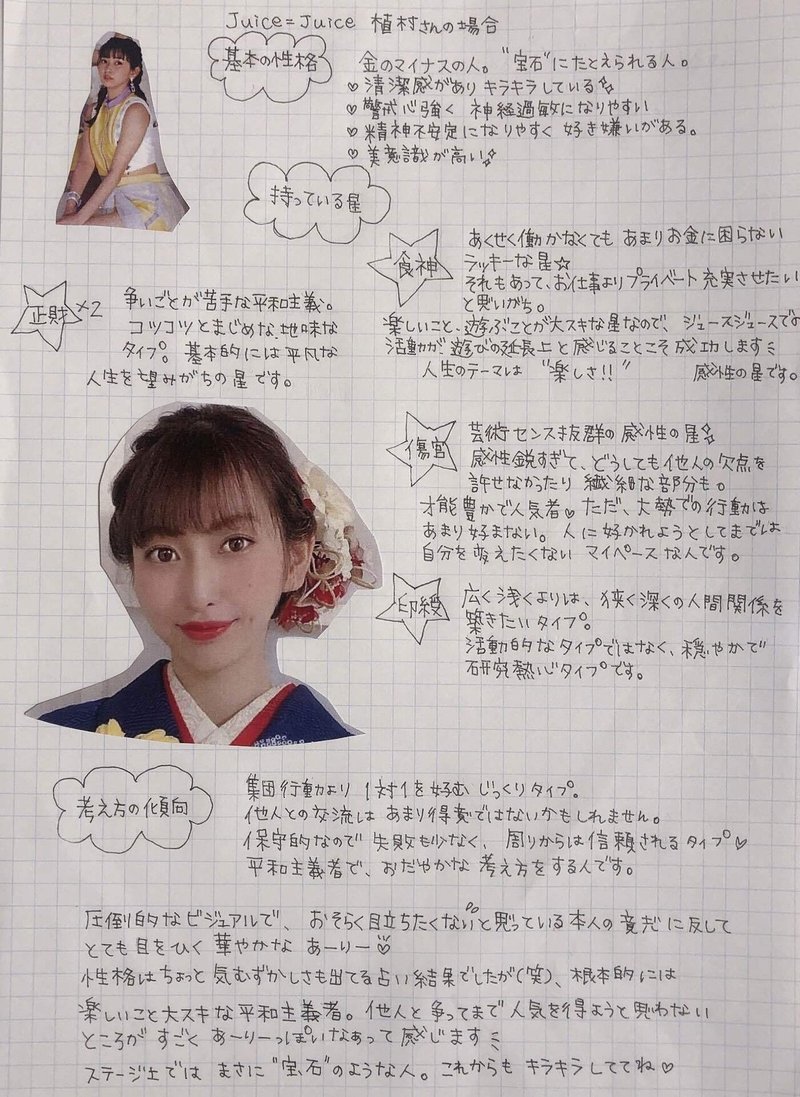 Juice=Juice 植村さんの場合
基本の性格
金のマイナスの人。"宝石"にたとえられる人。
♡清潔感がありキラキラしている
♡警戒心強く 神経過敏になりやすい
♡精神不安定になりやすく 好き嫌いがある。
♡美意識が高い
持っている星
食神
あくせく働かなくても あまりお金に困らない
ラッキーな星☆
それもあって、お仕事よりプライベート充実させたい
と思いがち。
楽しいこと、遊ぶことが大スキな星なので、ジュースジュースでの
活動が、遊びの延長上と感じることこそ成功します
人生のテーマは "楽しさ!!" 感性の星です。
正財×2
争いごとが苦手な平和主義。
コツコツとまじめな、地味な
タイプ。基本的には平凡な
人生を望みがちの星です。
傷官
芸術センス抜群の感性の星
感性鋭すぎて、どうしても他人の欠点を
許せなかったり 繊細な部分も。
才能豊かで人気者♡ただ、大勢での行動は
あまり好まない。人に好かれようとしてまでは
自分を変えたくない マイペースな人です。
印綬
広く浅くよりは、狭く深くの人間関係を
築きたいタイプ。
活動的なタイプではなく、穏やかで
研究熱心タイプです。
考え方の傾向
集団行動より 1対1を好む じっくりタイプ。
他人との交流は あまり得意ではないかもしれません。
保守的なので 失敗も少なく、周りからは信頼されるタイプ♡
平和主義者で、おだやかな 考え方をする人です。
圧倒的なビジュアルで、おそらく目立ちたくないと思っている本人の意志に反して
とても目をひく 華やかな あーりー♡
性格はちょっと 気むずかしさも出てる占い結果でしたが(笑)、根本的には
楽しいこと大スキな平和主義者。他人と争ってまで人気を得ようと思わない
ところが すごく あーりーっぽいなぁって 感じます
ステージ上では まさに"宝石"のような人。これからも キラキラしててね♡